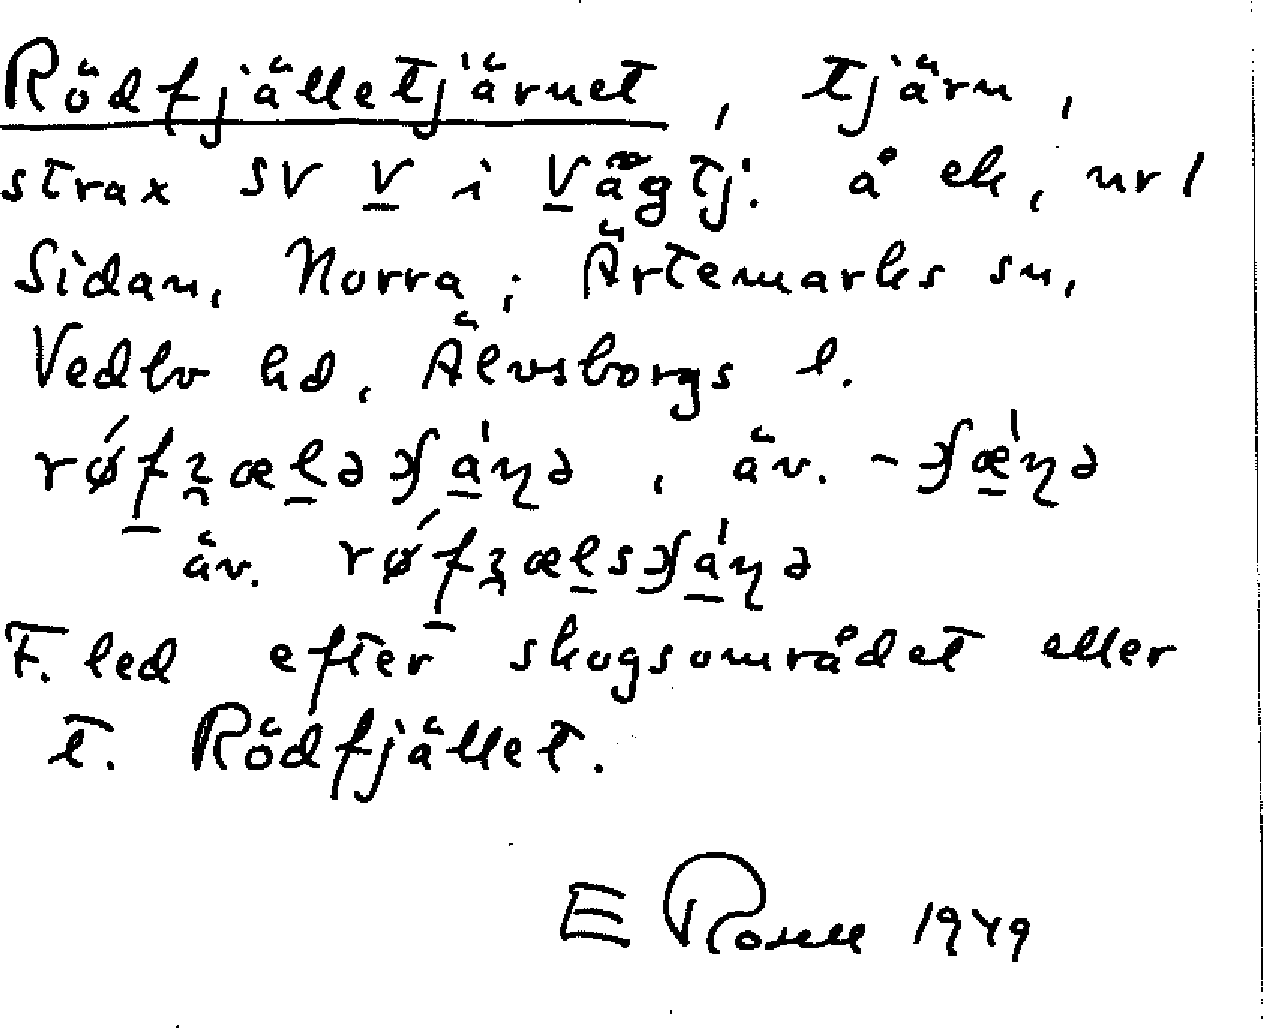 Rödfjälletjärnet, tjärn,
strax SV V i Vågtj. å ek, nr 1
Sidan, Norra; Ärtemarks sn,
Vedbo hd, Älvsborgs l.
äv.
äv.
F. led efter skogsområdet eller
t. Rödfjället.
E Rosell 1949